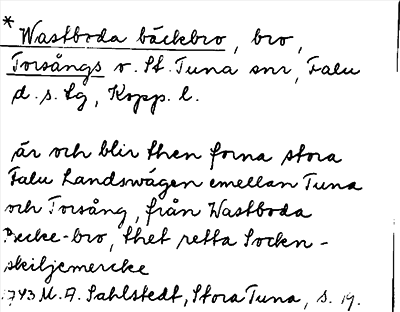 * Wastboda bäckbro, bro,
Torsångs o. St. Tuna snr, Falu
d. s. lg, Kopp. l.
är och blir then forna stora
Falu Landswägen emellan Tuna
och Torsång, från Wastboda
Becke-bro, thet retta Sockn-
skiljemercke
1743 M. A. Sahlstedt, Stora Tuna, s. 19.